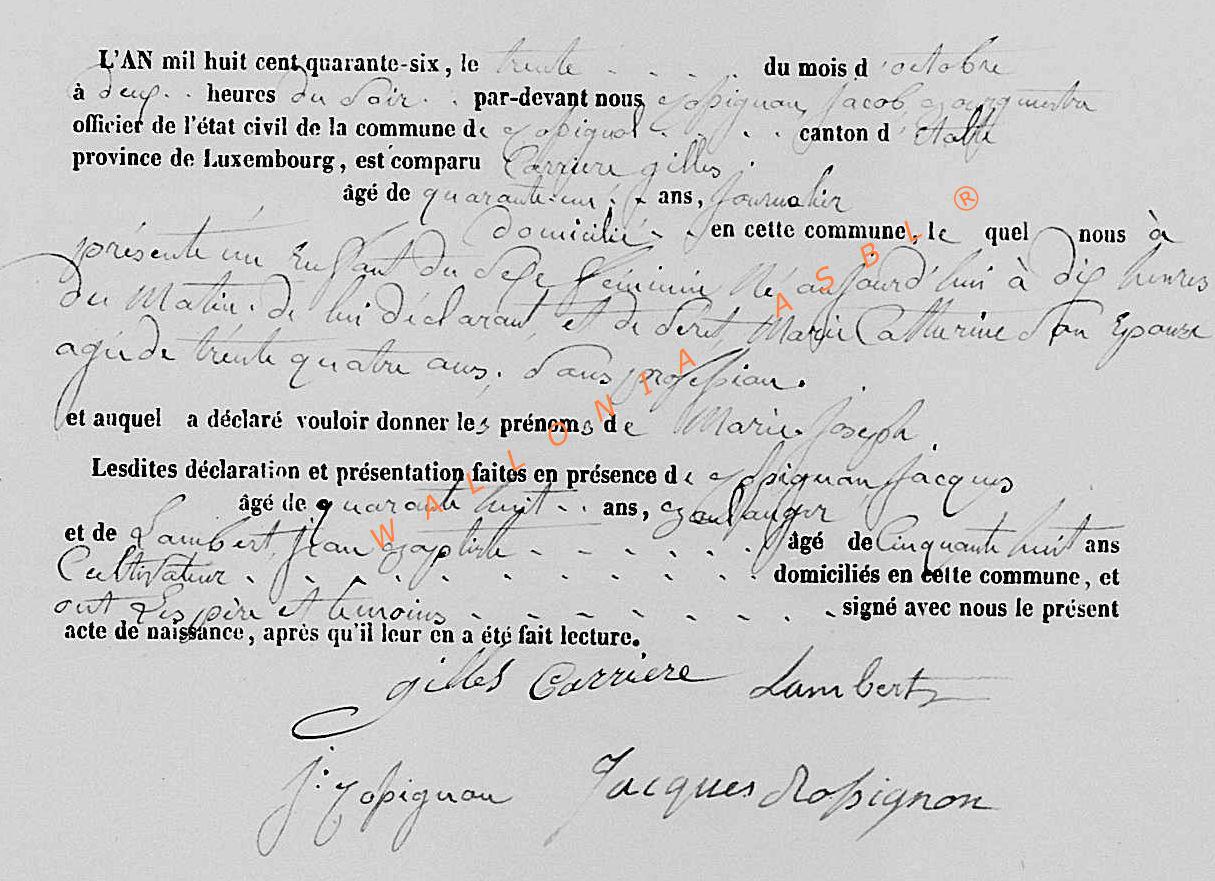 L'AN mil huit cent quarante-six, le trente du mois d'octobre
à deux heures du Soir par-devant nous Rossignon Jacob Bourgmestre
officier de l'état civil de la commune de Rossignol canton d'Etalle
province de Luxembourg, est comparu Carriere gilles
âgé de quarante-un ans, Journalier
domicilié en cette commune, le quel nous à
présenté un Enfant du Sexe féminin Né aujourd'hui à dix heures
du Matin. de lui déclarant, et de Marie Catherine Son Epouse
agée de trente quatre ans, Sans profession.
et auquel a déclaré vouloir donner les prénoms de Marie Joseph
Lesdites déclaration et présentation faites en présence de Rossignon Jacques
âgé de quarante huit ans, Boulanger
et de Lambert Jean Baptiste âgé de Cinquante huit ans
Cultivateur domiciliés en cette commune, et
ont Les père et temoins signé avec nous le présent
acte de naissance, après qu'il leur en a été fait lecture.
gilles Carriere Lambert
J. Rossignon Jacques Rossignon
WALLONIA ASBL ®